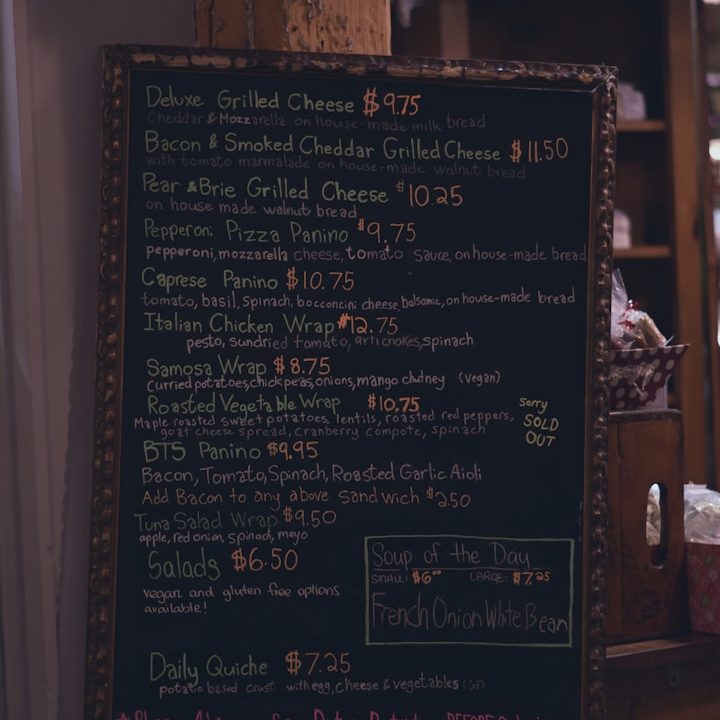 Deluxe Grilled Cheese $9.75
Cheddar & Mozzarella on house-made milk bread
Bacon & Smoked Cheddar Grilled Cheese $11.50
with tomato marmalade on house-made walnut bread
Pear & Brie Grilled Cheese $10.25
on house made walnut bread
Pepperoni Pizza Panino $9.75
pepperoni, mozzarella cheese, tomato sauce, on house-made bread
Caprese Panino $10.75
tomato, basil, spinach, bocconcini cheese, balsamic, on house-made bread
Italian Chicken Wrap $12.75
pesto, sundried tomato, artichokes, spinach
Samosa Wrap $8.75
Curried potatoes, chick peas, onions, mango chutney (vegan)
Roasted Vegetable Wrap $10.75
Maple roasted sweet potatoes, lentils, roasted red peppers,
goat cheese spread, cranberry compote, spinach
Sorry
SOLD
OUT
BTS Panino $9.95
Bacon, Tomato, Spinach, Roasted Garlic Aioli
Add Bacon to any above sandwich $2.50
Tuna Salad Wrap $9.50
apple, red onion, spinach, mayo
Salads $6.50
vegan and gluten free options
available!
Soup of the Day
SMALL: $6.00 LARGE: $7.25
French Onion White Bean
Daily Quiche $7.25
potato based crust with egg, cheese & vegetables (GF)